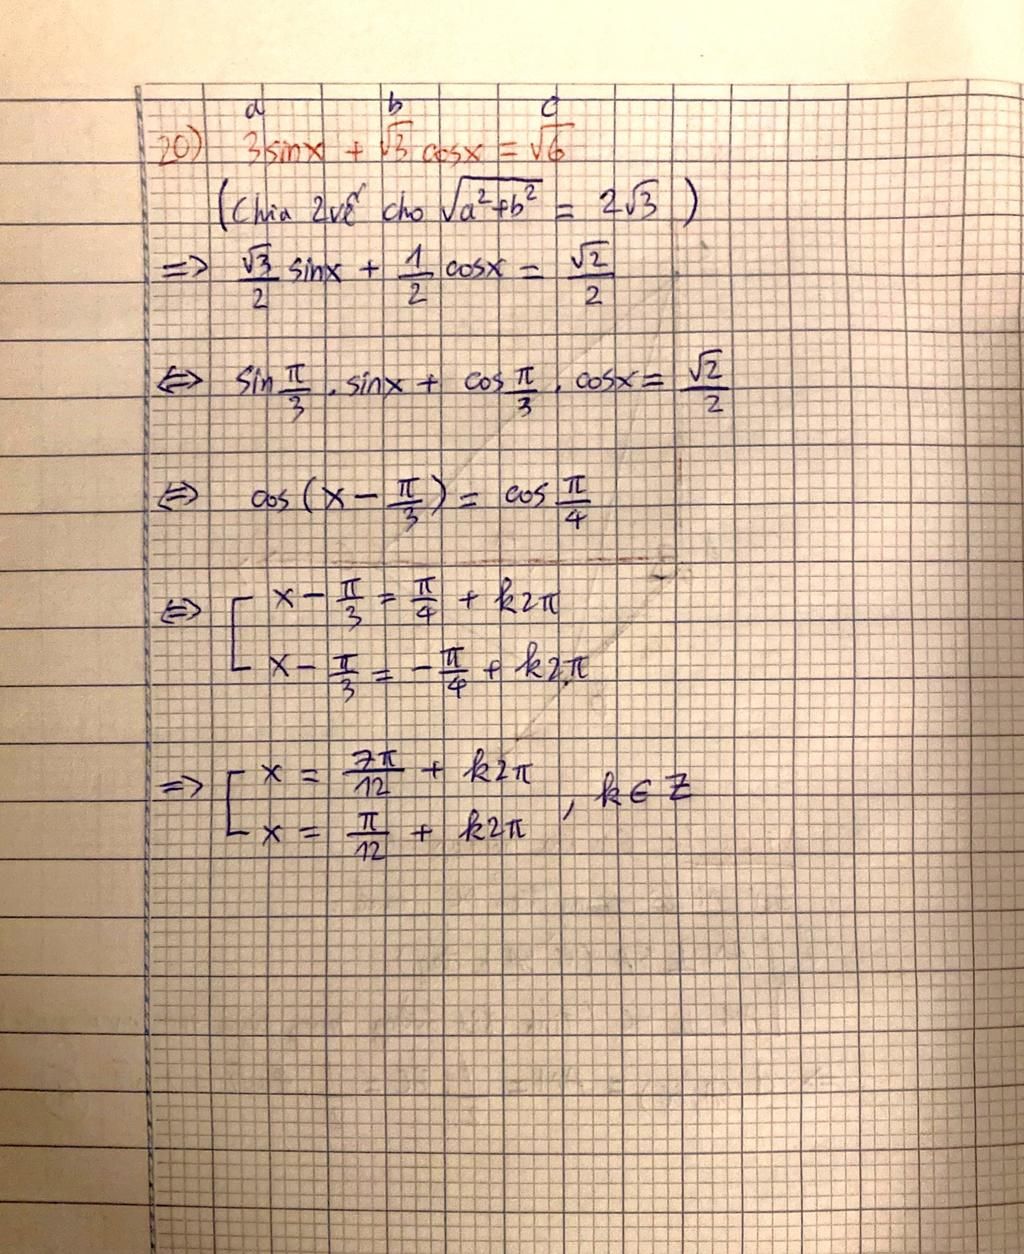 a b c
20) 3sinx + √3 cosx = √6
(Chia 2 vế cho √(a²+b²) = 2√3 )
=> √3/2 sinx + 1/2 cosx = √2/2
<=> sin π/3 . sinx + cos π/3 . cosx = √2/2
<=> cos (x - π/3) = cos π/4
<=> [ x - π/3 = π/4 + k2π
x - π/3 = -π/4 + k2π
=> [ x = 7π/12 + k2π
x = π/12 + k2π , k ∈ Z